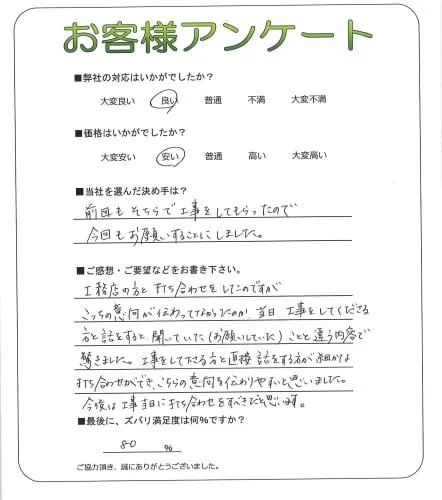 お客様アンケート
■弊社の対応はいかがでしたか？
大変良い 良い 普通 不満 大変不満
■価格はいかがでしたか？
大変安い 安い 普通 高い 大変高い
■当社を選んだ決め手は？
前回もそちらで工事をしてもらったので
今回もお願いすることにしました。
■ご感想・ご要望などをお書き下さい。
工務店の方と打ち合わせをしたのですが
こっちの意向が伝わってなかったのか、当日 工事をしてくださる
方と話をすると、聞いていた(お願いしていた)ことと違う内容で
驚きました。工事をして下さる方と直接 話をする方が細かな
打ち合わせができ、こちらの意向を伝わりやすいと思いました。
今後は工事当日に打ち合わせをすべきだと思います。
■最後に、ズバリ満足度は何%ですか？
80 %
ご協力頂き、誠にありがとうございました。